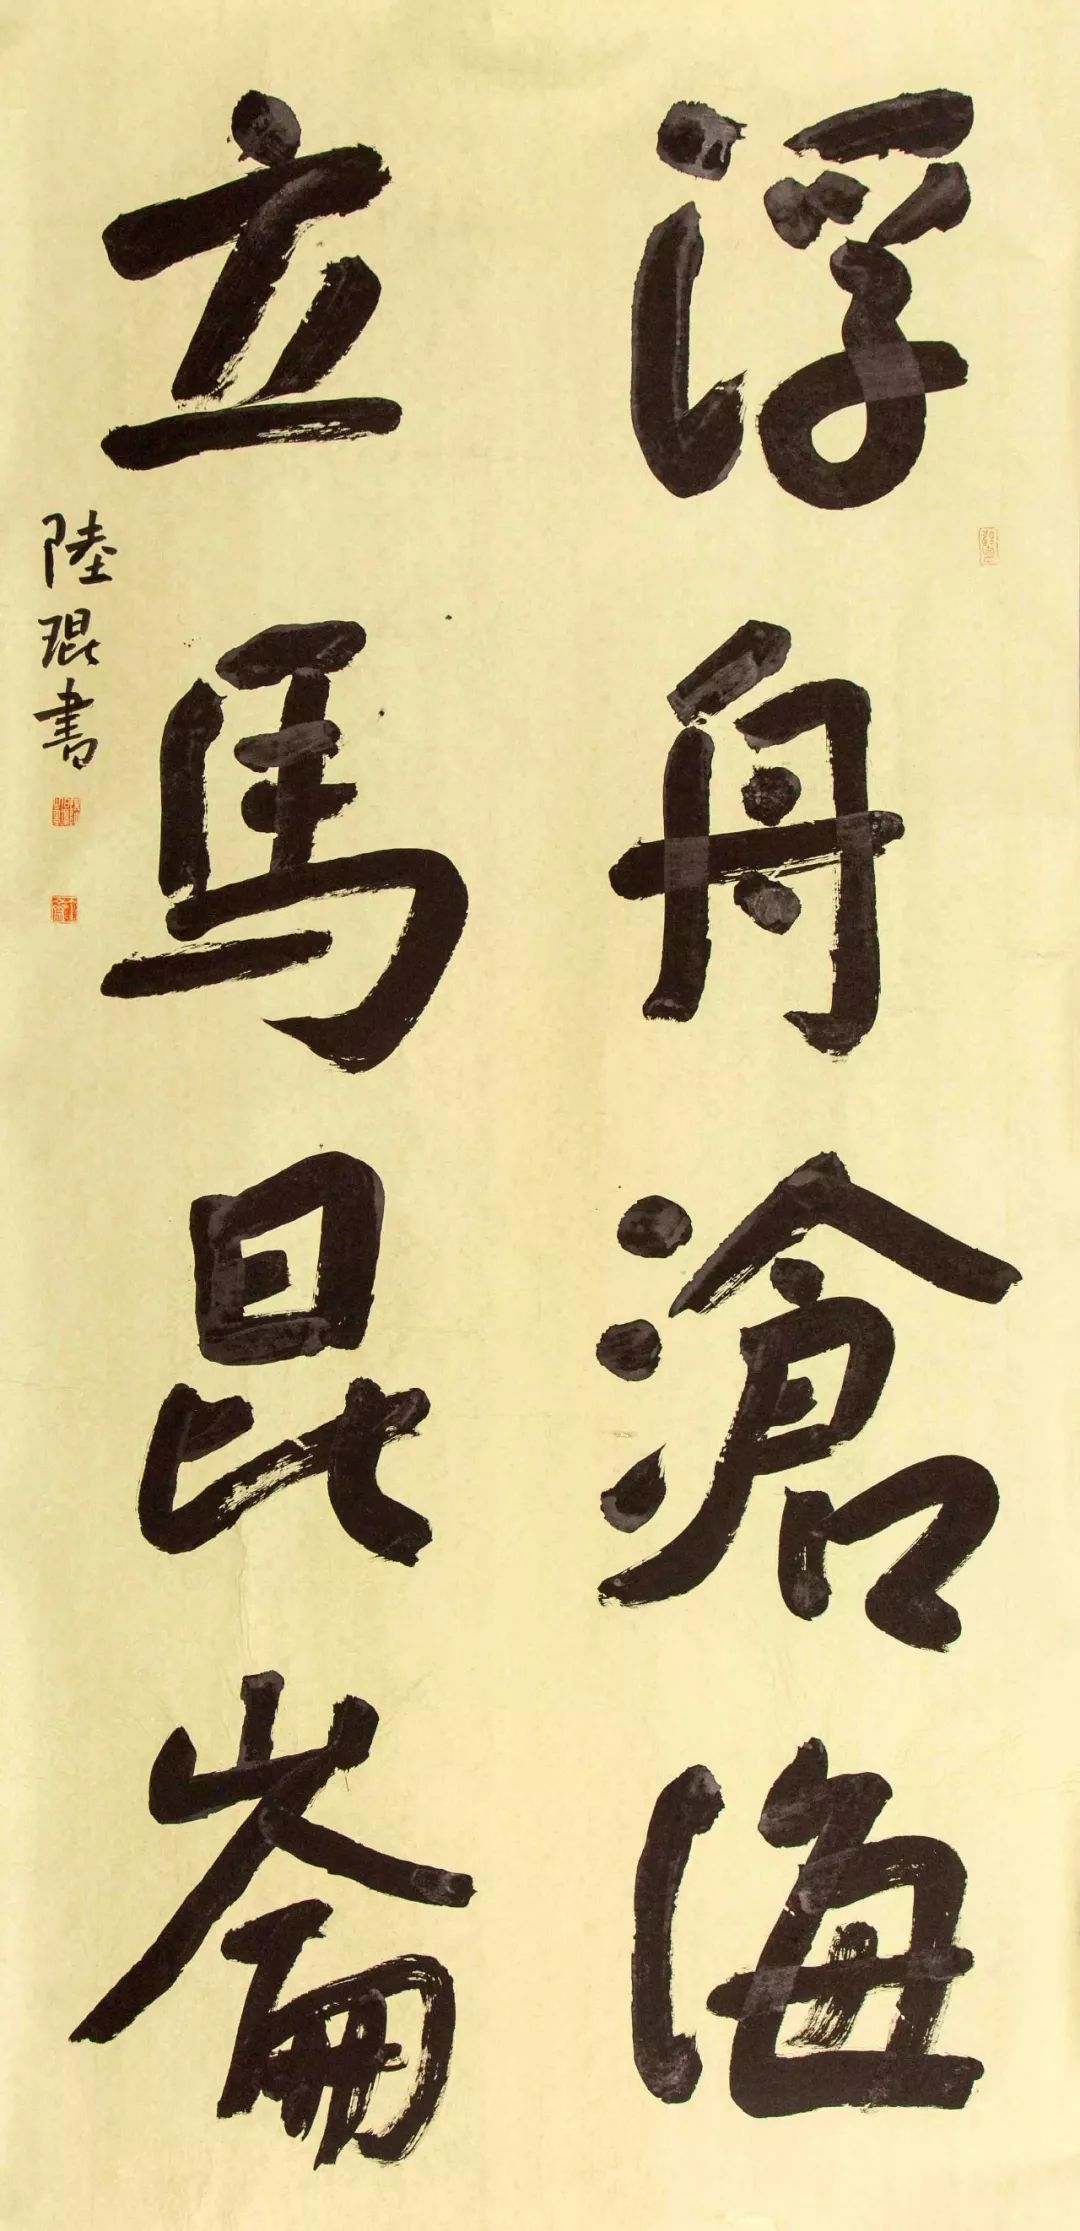 浮舟滄海
立馬昆崙
陸琨書